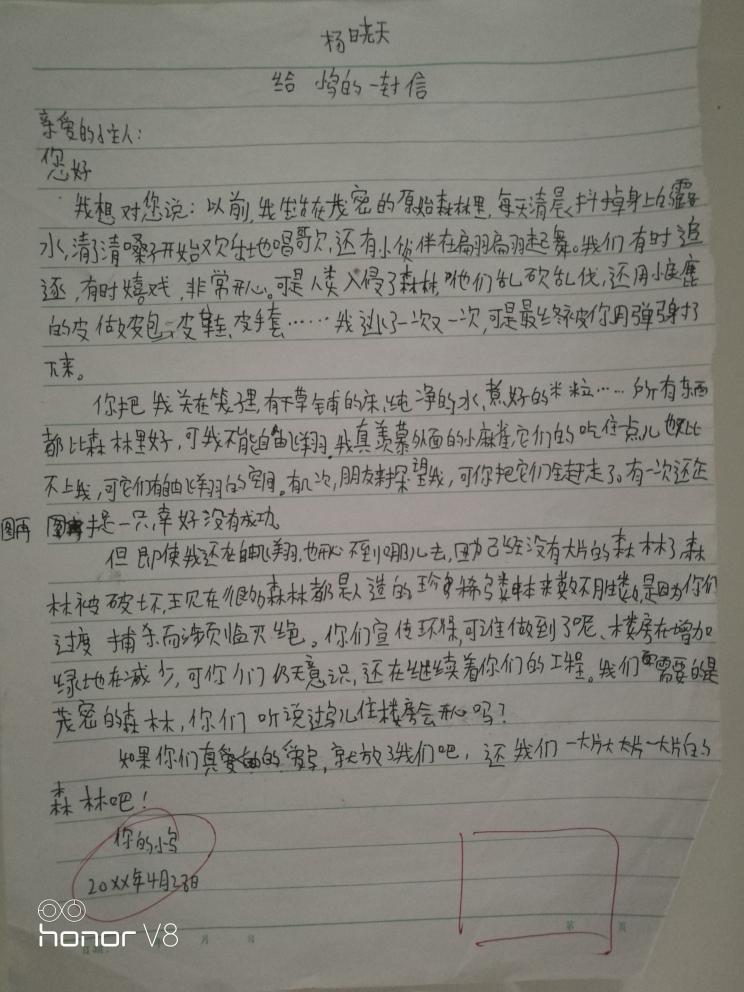 杨晓天
给 鸟的一封信
亲爱的主人：
您好
我想对您说：以前，我生活在茂密的原始森林里，每天清晨抖掉身上的露
水，清了清嗓子开始欢乐地唱歌，还有小伙伴在扇羽扇羽起舞。我们有时追
逐，有时嬉戏，非常开心。可是人类入侵了森林，他们乱砍乱伐，还用小鹿
的皮做皮包、皮鞋、皮手套……我逃了一次又一次，可是最终被你用弹弓射了
下来。
你把我关在笼子里，有干草铺的床、纯净的水、煮好的米粒……所有东西
都比森林里好，可我不能自由飞翔。我真羡慕外面的小麻雀，它们的吃住点儿也比
不上我，可它们有自由飞翔的空间。有几次，朋友来探望我，可你把它们全赶走了。有一次还
再 捉一只，幸好没有成功。
但即使我还在自由飞翔，也开心不到哪儿去，因为已经没有大片的森林了，森
林被破坏，现在很多森林都是人造的，珍稀鸟类本来数不胜数，是因为你们
过度捕杀而濒临灭绝。你们宣传环保，可谁做到了呢、楼房在增加
绿地在减少，可你们仍无意识，还在继续着你们的工程。我们需要的是
茂密的森林，你们听说过鸟儿住楼房会开心吗？
如果你们真爱鸟，就放了我们吧，还我们一大片大大片一大片的
森林吧！
你的小鸟
20XX年4月23日
月 日
第 页
honor V8